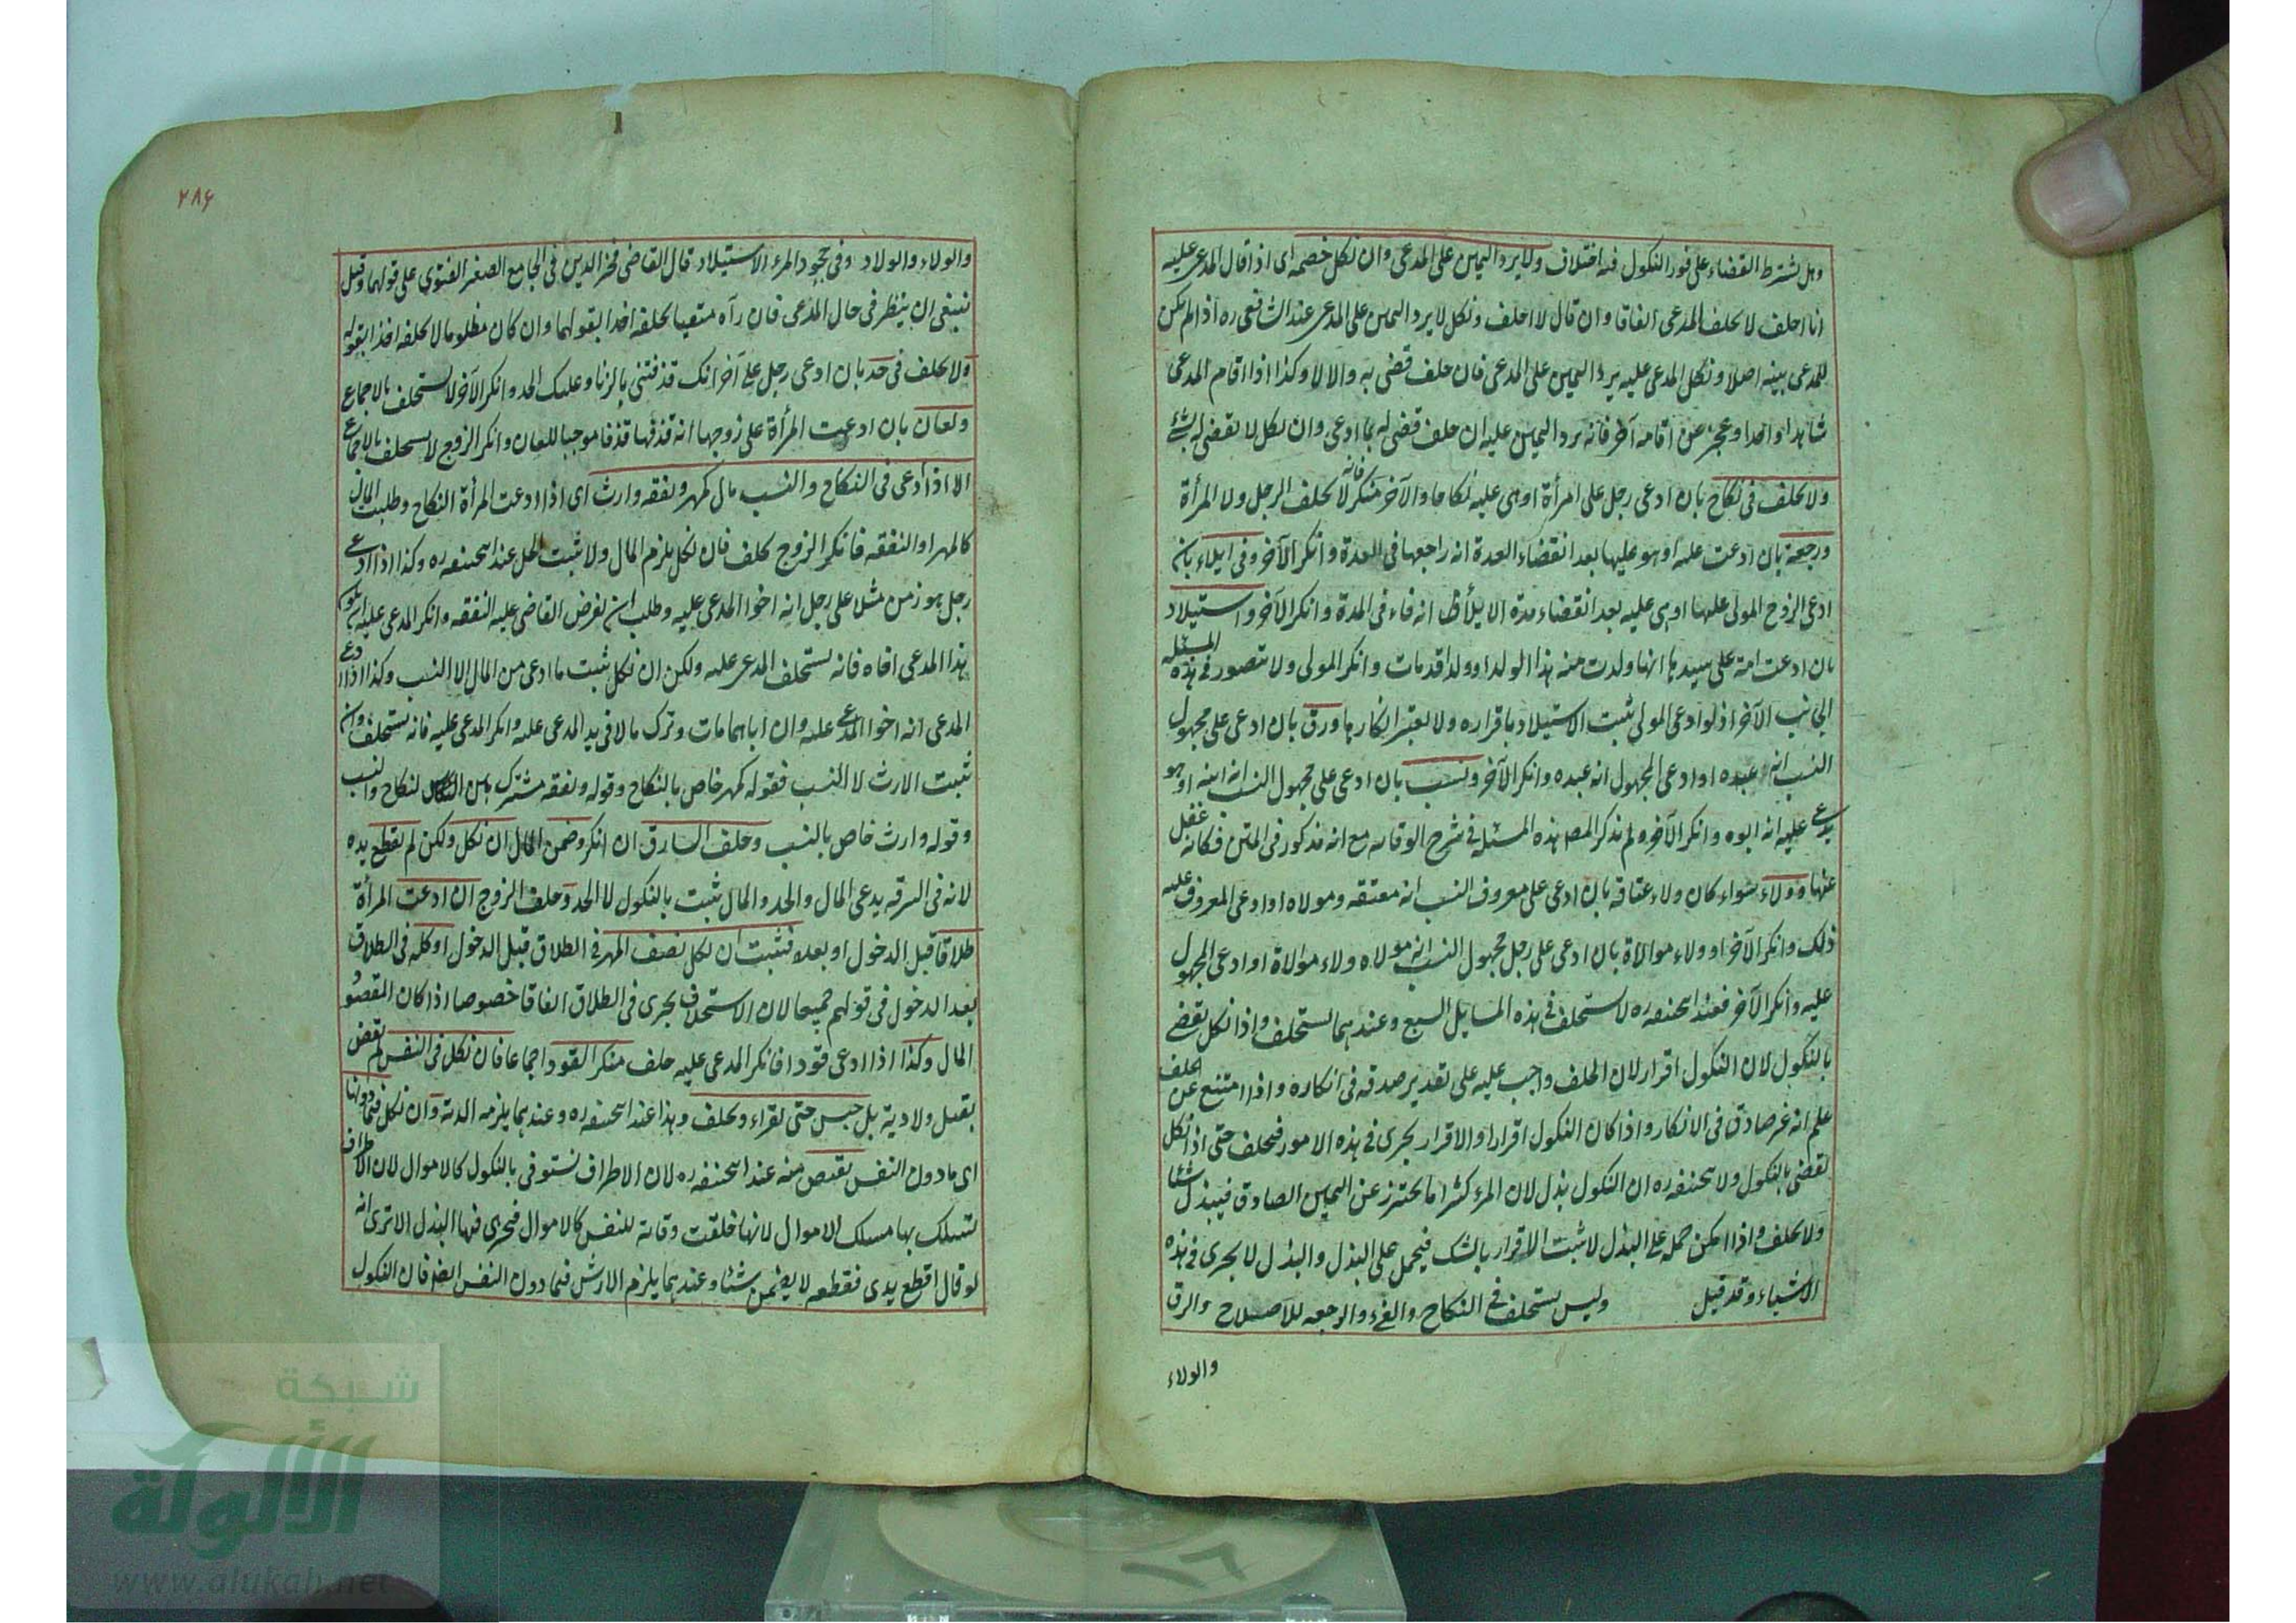 وهل يشترط القضاء على فور النكول فيه اختلاف ولا يرد اليمين على المدعى وان نكل خصمه اى اذا قال المدعى عليه
انا احلف لا يحلف المدعى اتفاقا وان قال لا احلف ونكل لا يرد اليمين على المدعى عند الشافعى ره اذا لم يكن
للمدعى بينه اصلا ونكل المدعى عليه يرد اليمين على المدعى فان حلف قضى به والا لا وكذا اذا اقام المدعى
شاهدا واحدا وعجز عن اقامه آخر فانه يرد اليمين عليه ان حلف قضى له بما ادعى وان نكل لا يقضى له بشئ
ولا يحلف فى نكاح بان ادعى رجل على امرأة او هى عليه نكاحا والآخر منكر فانه لا يحلف الرجل ولا المرأة
ورجعة بان ادعت عليه او هو عليها بعد انقضاء العدة انه راجعها فى العدة وانكر الآخر وفى ايلاء بان
ادعى الزوج المولى عليها او هى عليه بعد انقضاء مدة الايلاء انه فاء فى المدة وانكر الآخر واستيلاد
بان ادعت امة على سيدها انها ولدت منه هذا الولد او ولدا قد مات وانكر المولى ولا يتصور فى هذه المسئله
الجانب الآخر اذ لو ادعى المولى يثبت الاستيلاد باقراره ولا يعتبر انكارها ورق بان ادعى على مجهول
النسب انه عبده او ادعى المجهول انه عبده وانكر الآخر ونسب بان ادعى على مجهول النسب انه ابنه او هو
يدعى عليه انه ابوه وانكر الآخر ولم يذكر المصـ هذه المسئله فى شرح الوقايه مع انه مذكور فى المتن فكانه غفل
عنها وولاء سواء كان ولاء عتاقه بان ادعى على معروف النسب انه معتقه ومولاه او ادعى المعروف عليه
ذلك وانكر الآخر او ولاء موالاة بان ادعى على رجل مجهول النسب انه مولاه ولاء موالاة او ادعى المجهول
عليه وانكر الآخر فعند ابحنيفه ره لا يستحلف فى هذه المسايل السبع وعندهما يستحلف واذا نكل يقضى
بالنكول لان النكول اقرار لان الحلف واجب عليه على تقدير صدقه فى انكاره واذا امتنع عن الحلف
علم انه غير صادق فى الانكار واذا كان النكول اقرارا والاقرار يجرى فى هذه الامور فيحلف حتى اذا نكل
يقضى بالنكول ولابحنيفه ره ان النكول بذل لان المرء كثيرا ما يحترز عن اليمين الصادق فيبذل شيئا
ولا يحلف واذا امكن حمله على البذل لا يثبت الاقرار بالشك فيحمل على البذل والبذل لا يجرى فى هذه
الاشياء وقد قيل وليس يستحلف فى النكاح والفىء والرجعه للاصلاح والرق
والولاء
٢٨٦
والولاء والولاد وفى جحود المرء الاستيلاد قال القاضى فخر الدين فى الجامع الصغير الفتوى على قولهما وقيل
ينبغى ان ينظر فى حال المدعى فان رآه متعنتا يحلفه اخذا بقولهما وان كان مظلوما لا يحلفه اخذا بقوله
ولا يحلف فى حد بان ادعى رجل على آخر انك قذفتنى بالزنا وعليك الحد وانكر الآخر لا يستحلف بالاجماع
ولعان بان ادعت المرأة على زوجها انه قذفها قذفا موجبا للعان وانكر الزوج لا يستحلف بالاجماع
الا اذا ادعى فى النكاح والنسب مال كمهر ونفقه وارث اى اذا ادعت المرأة النكاح وطلبت المال
كالمهر او النفقه فانكر الزوج يحلف فان نكل يلزم المال ولا يثبت الحل عند ابحنيفه ره وكذا اذا ادعى
رجل هو زمن مثلا على رجل انه اخوا المدعى عليه وطلب ان يفرض القاضى عليه النفقه وانكر المدعى عليه ان يكون
هذا المدعى اخاه فانه يستحلف المدعى عليه ولكن ان نكل يثبت ما ادعى من المال لا النسب وكذا اذا ادعى
المدعى انه اخوا المدعى عليه وان اباهما مات وترك مالا فى يد المدعى عليه وانكر المدعى عليه فانه يستحلف وان
يثبت الارث لا النسب فقوله كمهر خاص بالنكاح وقوله ونفقه مشترك بين النكاح والنسب
وقوله وارث خاص بالنسب وحلف السارق ان انكر وضمن المال ان نكل ولكن لم تقطع يده
لانه فى السرقه يدعى المال والحد والمال يثبت بالنكول لا الحد وحلف الزوج ان ادعت المرأة
طلاقا قبل الدخول او بعده فيثبت ان نكل نصف المهر فى الطلاق قبل الدخول او كله فى الطلاق
بعد الدخول فى قولهم جميعا لان الاستحلاف يجرى فى الطلاق اتفاقا خصوصا اذا كان المقصود
المال وكذا اذا ادعى قودا فانكر المدعى عليه حلف منكر القود اجماعا فان نكل فى النفس لم يقض
بقتل ولا دية بل حبس حتى يقر او يحلف وهذا عند ابحنيفه ره وعندهما يلزمه الدية وان نكل فيما دونها
اى ما دون النفس يقتص منه عند ابحنيفه ره لان الاطراف يستوفى بالنكول كالاموال لان الاطراف
يسلك بها مسلك الاموال لانها خلقت وقاية للنفس كالاموال فيجرى فيها البذل الا ترى انه
لو قال اقطع يدى فقطعه لا يضمن شيئا وعندهما يلزم الارش فيما دون النفس ايضا فان النكول
شبكة
الألوكة
www.alukah.net